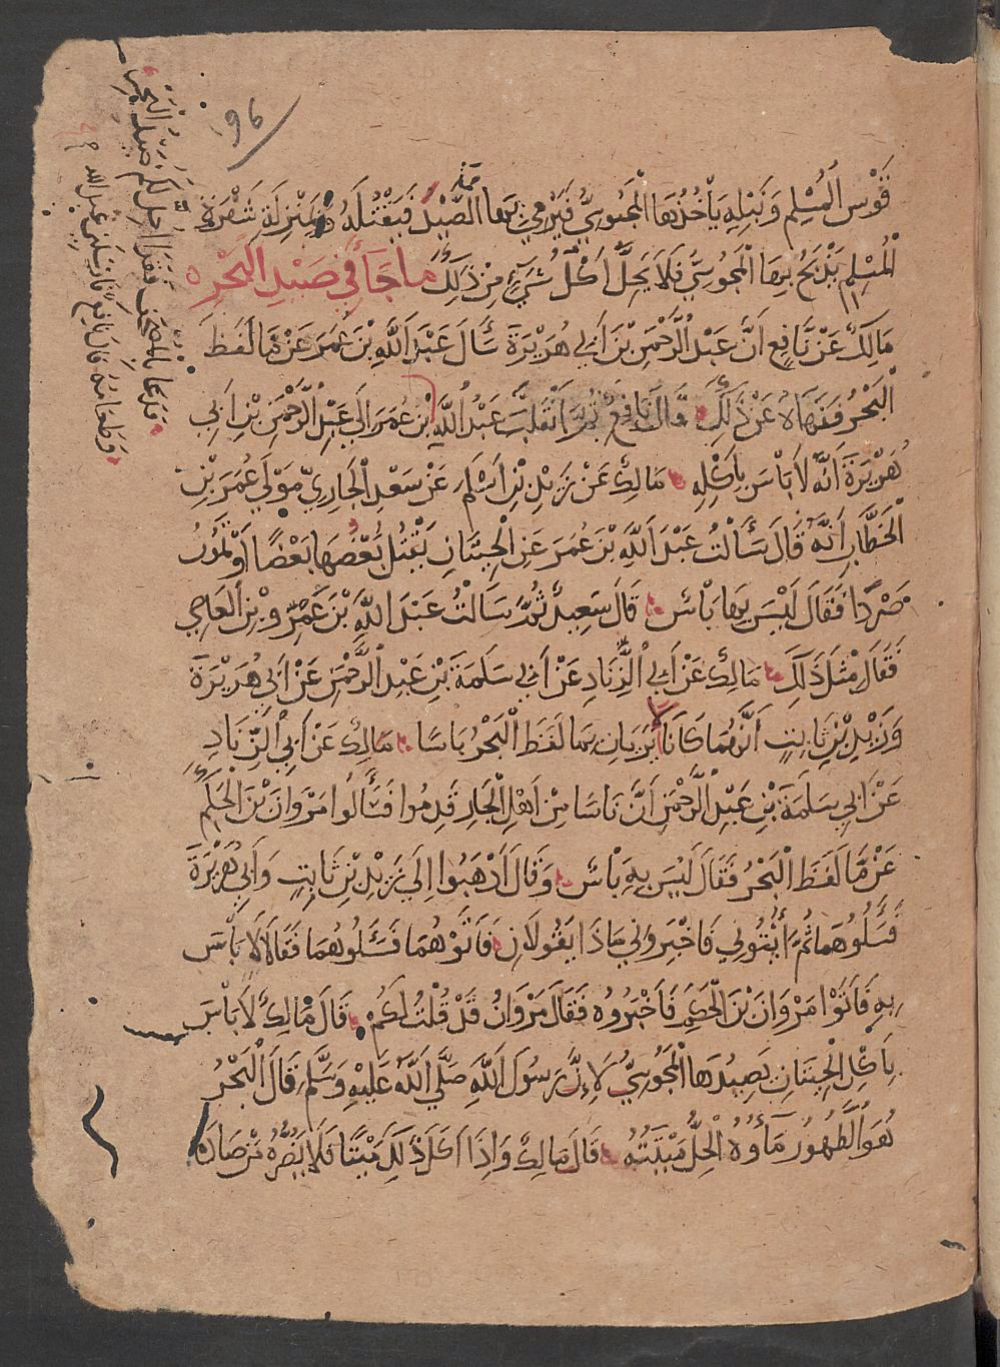 96
قَوْسِ الْمُسْلِمِ وَنَبْلِهِ يَأْخُذُهَا الْمَجُوسِيُّ فَيَرْمِي بِهَا الصَّيْدَ فَيَقْتُلُهُ وَبِمَنْزِلَةِ شَفْرَةِ
الْمُسْلِمِ يَذْبَحُ بِهَا الْمَجُوسِيُّ فَلَا يَحِلُّ أَكْلُ شَيْءٍ مِنْ ذَلِكَ مَا جَاءَ فِي صَيْدِ الْبَحْرِ
مَالِكٌ عَنْ نَّافِعٍ أَنَّ عَبْدَ الرَّحْمَنِ بْنَ أَبِي هُرَيْرَةَ سَأَلَ عَبْدَ اللَّهِ بْنَ عُمَرَ عَنْ مَّا لَفَظَ
الْبَحْرُ فَنَهَاهُ عَنْ ذَلِكَ قَالَ نَافِعٌ ثُمَّ انْقَلَبَ عَبْدُ اللَّهِ بْنُ عُمَرَ إِلَى عَبْدِ الرَّحْمَنِ بْنِ أَبِي
هُرَيْرَةَ أَنَّهُ لَا بَأْسَ بِأَكْلِهِ مَالِكٌ عَنْ زَيْدِ بْنِ أَسْلَمَ عَنْ سَعْدٍ الْجَارِيِّ مَوْلَى عُمَرَ بْنِ
الْخَطَّابِ أَنَّهُ قَالَ سَأَلْتُ عَبْدَ اللَّهِ بْنَ عُمَرَ عَنِ الْحِيتَانِ يَقْتُلُ بَعْضُهَا بَعْضًا أَوْ تَمُوتُ
صَرْدًا فَقَالَ لَيْسَ بِهَا بَأْسٌ قَالَ سَعِيدٌ ثُمَّ سَأَلْتُ عَبْدَ اللَّهِ بْنَ عَمْرِو بْنِ الْعَاصِي
فَقَالَ مِثْلَ ذَلِكَ مَالِكٌ عَنْ أَبِي الزِّنَادِ عَنْ أَبِي سَلَمَةَ بْنِ عَبْدِ الرَّحْمَنِ عَنْ أَبِي هُرَيْرَةَ
وَزَيْدِ بْنِ ثَابِتٍ أَنَّهُمَا كَانَا لَا يَرَيَانِ بِمَا لَفَظَ الْبَحْرُ بَاسًا مَالِكٌ عَنْ أَبِي الزِّنَادِ
عَنْ أَبِي سَلَمَةَ بْنِ عَبْدِ الرَّحْمَنِ أَنَّ نَاسًا مِنْ أَهْلِ الْجَارِ قَدِمُوا فَسَأَلُوا مَرْوَانَ بْنَ الْحَكَمِ
عَنْ مَّا لَفَظَ الْبَحْرُ فَقَالَ لَيْسَ بِهِ بَأْسٌ وَقَالَ اذْهَبُوا إِلَى زَيْدِ بْنِ ثَابِتٍ وَأَبِي هُرَيْرَةَ
فَسَلُوهُمَا ثُمَّ ائْتُونِي فَاخْبِرُونِي مَاذَا يَقُولَانِ فَأَتَوْهُمَا فَسَئَلُوهُمَا فَقَالَا لَا بَأْسَ
بِهِ فَأَتَوْا مَرْوَانَ بْنَ الْحَكَمِ فَأَخْبَرُوهُ فَقَالَ مَرْوَانُ قَدْ قُلْتُ لَكُمْ قَالَ مَالِكٌ لَا بَأْسَ
بِأَكْلِ الْحِيتَانِ يَصِيدُهَا الْمَجُوسِيُّ لِأَنَّ رَسُولَ اللَّهِ صَلَّى اللَّهُ عَلَيْهِ وَسَلَّمَ قَالَ الْبَحْرُ
هُوَ الطَّهُورُ مَاؤُهُ الْحِلُّ مَيْتَتُهُ قَالَ مَالِكٌ وَإِذَا أَكَلَ ذَلِكَ مَيْتًا فَلَا يَضُرُّهُ مَنْ صَادَهُ
فَدَعَا بِالْمُصْحَفِ فَقَرَأَ أُحِلَّ لَكُمْ صَيْدُ الْبَحْرِ
وَطَعَامُهُ قَالَ نَافِعٌ فَأَرْسَلَنِي عَبْدُ اللَّهِ